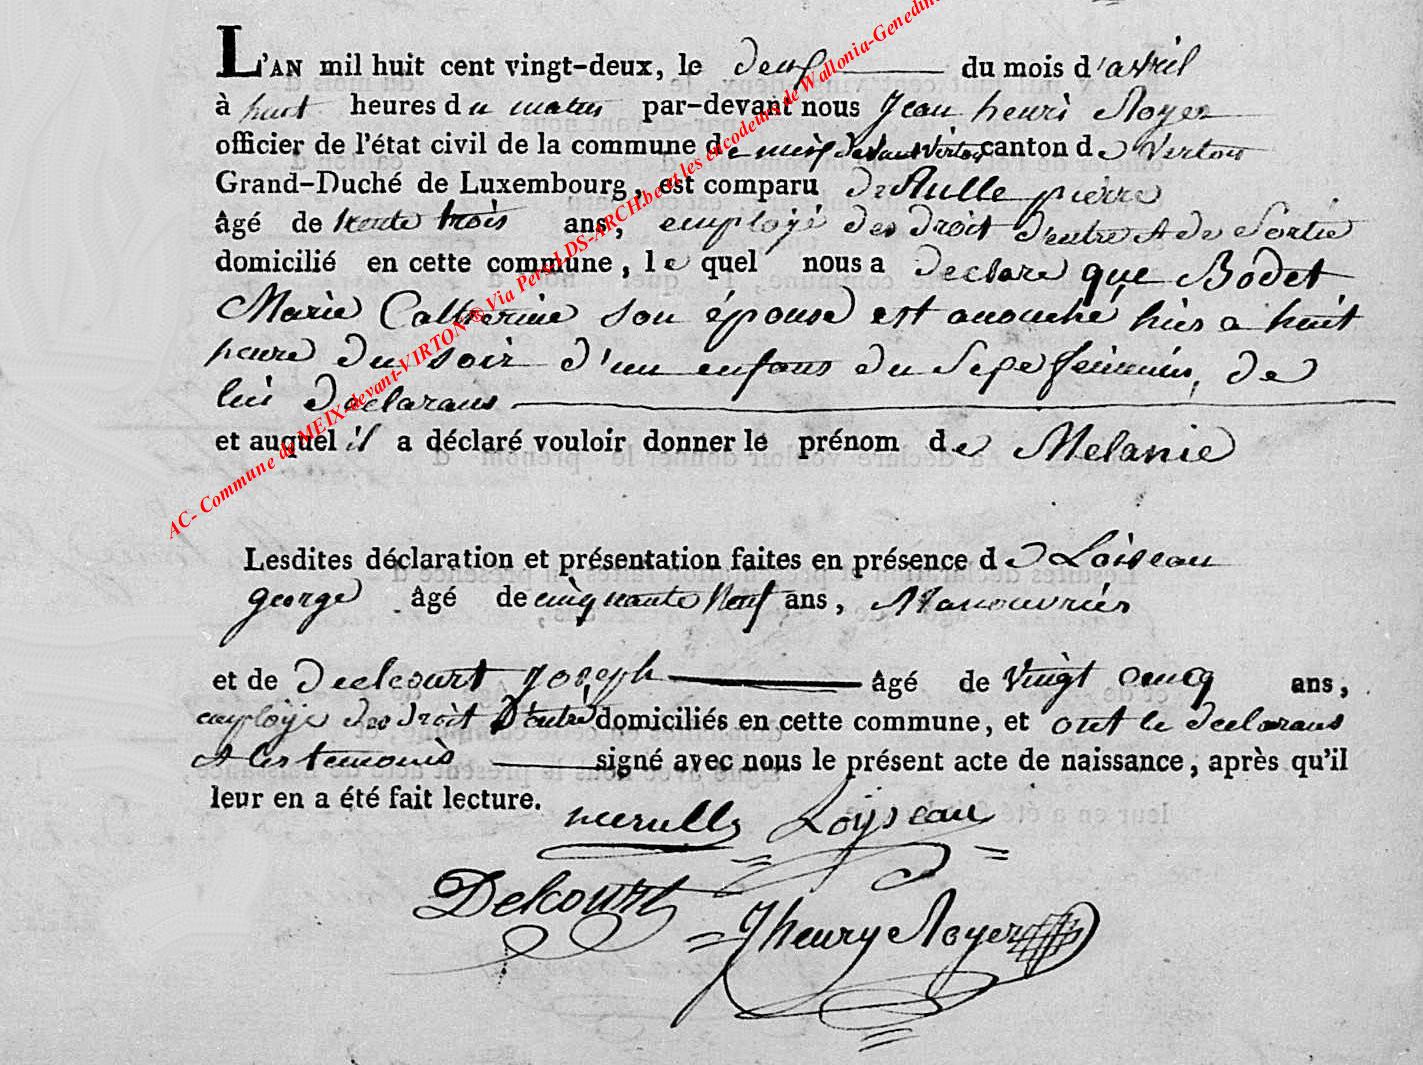 L'AN mil huit cent vingt-deux, le deux du mois d'avril
à huit heures du matin par-devant nous Jean henri Royer
officier de l'état civil de la commune de meix devant Virton canton de Virton
Grand-Duché de Luxembourg, est comparu pierre
âgé de trente trois ans, employé des droit d'entre et de Sortie
domicilié en cette commune, le quel nous a declare que Bodet
Marie Catherine son épouse est acouché hier a huit
heure du soir d'un enfans du Sexe feminin, de
lui declarans
et auquel il a déclaré vouloir donner le prénom de Melanie
Lesdites déclaration et présentation faites en présence de Loiseau
george âgé de cinquante Neuf ans, Manouvrier
et de Deelcourt joseph âgé de Vingt cincq ans,
employe des droit D'entre domiciliés en cette commune, et ont le declarans
et les temoins signé avec nous le présent acte de naissance, après qu'il
leur en a été fait lecture.
Loyseau
Delcourt
Jhenry Royer
AC- Commune de MEIX-devant-VIRTON ® Via Pers-LDS-ARCH.be et les encodeurs de Wallonia-Genedin